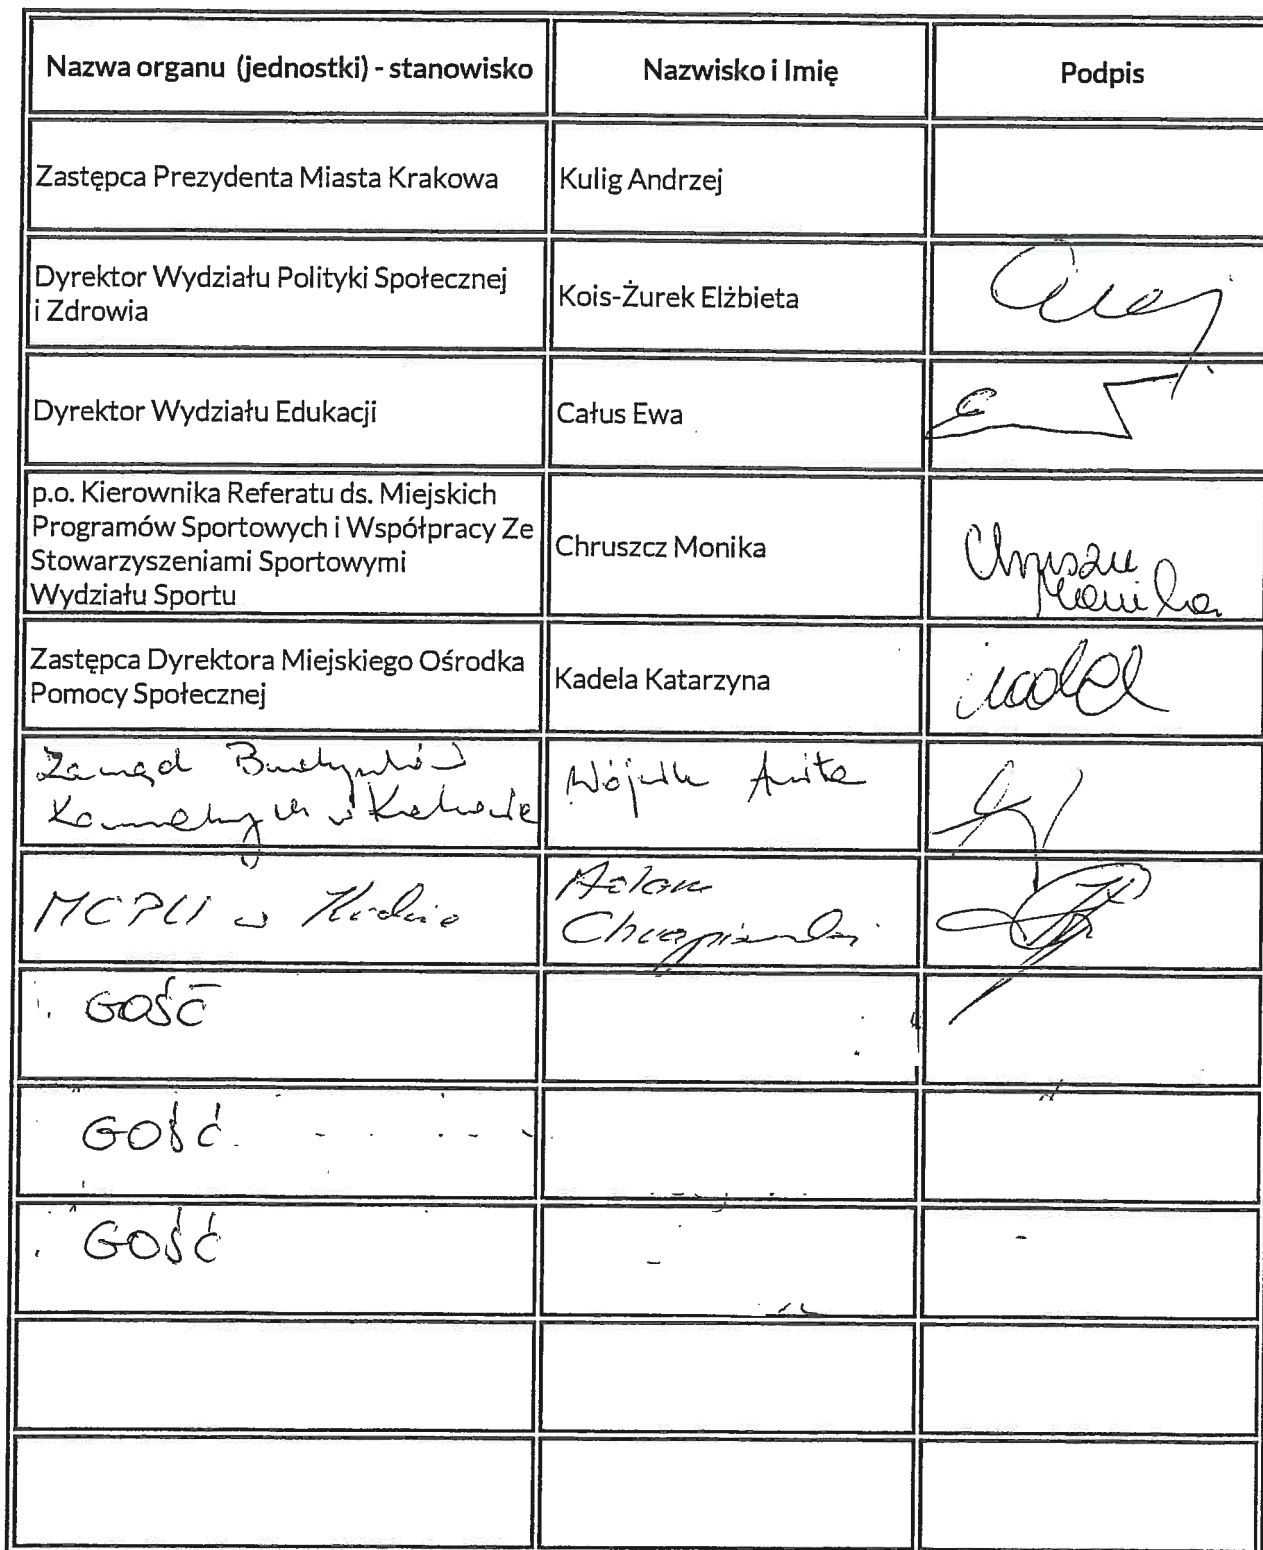 Nazwa organu (jednostki) - stanowisko
Nazwisko i Imię
Podpis
Zastępca Prezydenta Miasta Krakowa
Kulig Andrzej
Dyrektor Wydziału Polityki Społecznej
i Zdrowia
Kois-Żurek Elżbieta
Dyrektor Wydziału Edukacji
Całus Ewa
p.o. Kierownika Referatu ds. Miejskich
Programów Sportowych i Współpracy Ze
Stowarzyszeniami Sportowymi
Wydziału Sportu
Chruszcz Monika
Chruszcz
Monika
Zastępca Dyrektora Miejskiego Ośrodka
Pomocy Społecznej
Kadela Katarzyna
Zarząd Budynków
Komunalnych w Krakowie
Wójcik Anita
MCPU w
Adam
GOŚĆ
GOŚĆ
GOŚĆ